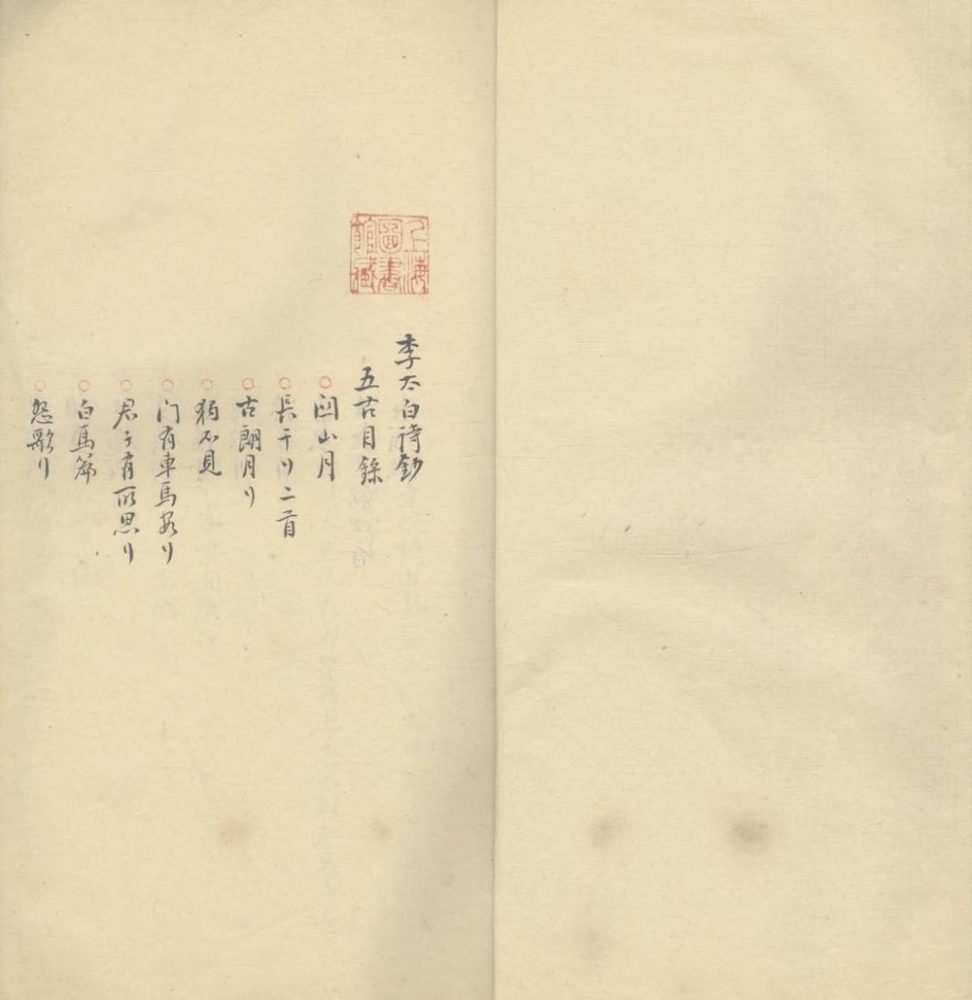 上海
圖書
館藏
李太白詩鈔
五古目錄
關山月
長干行二首
古朗月行
獨不見
门有車馬客行
君子有所思行
白馬篇
怨歌行